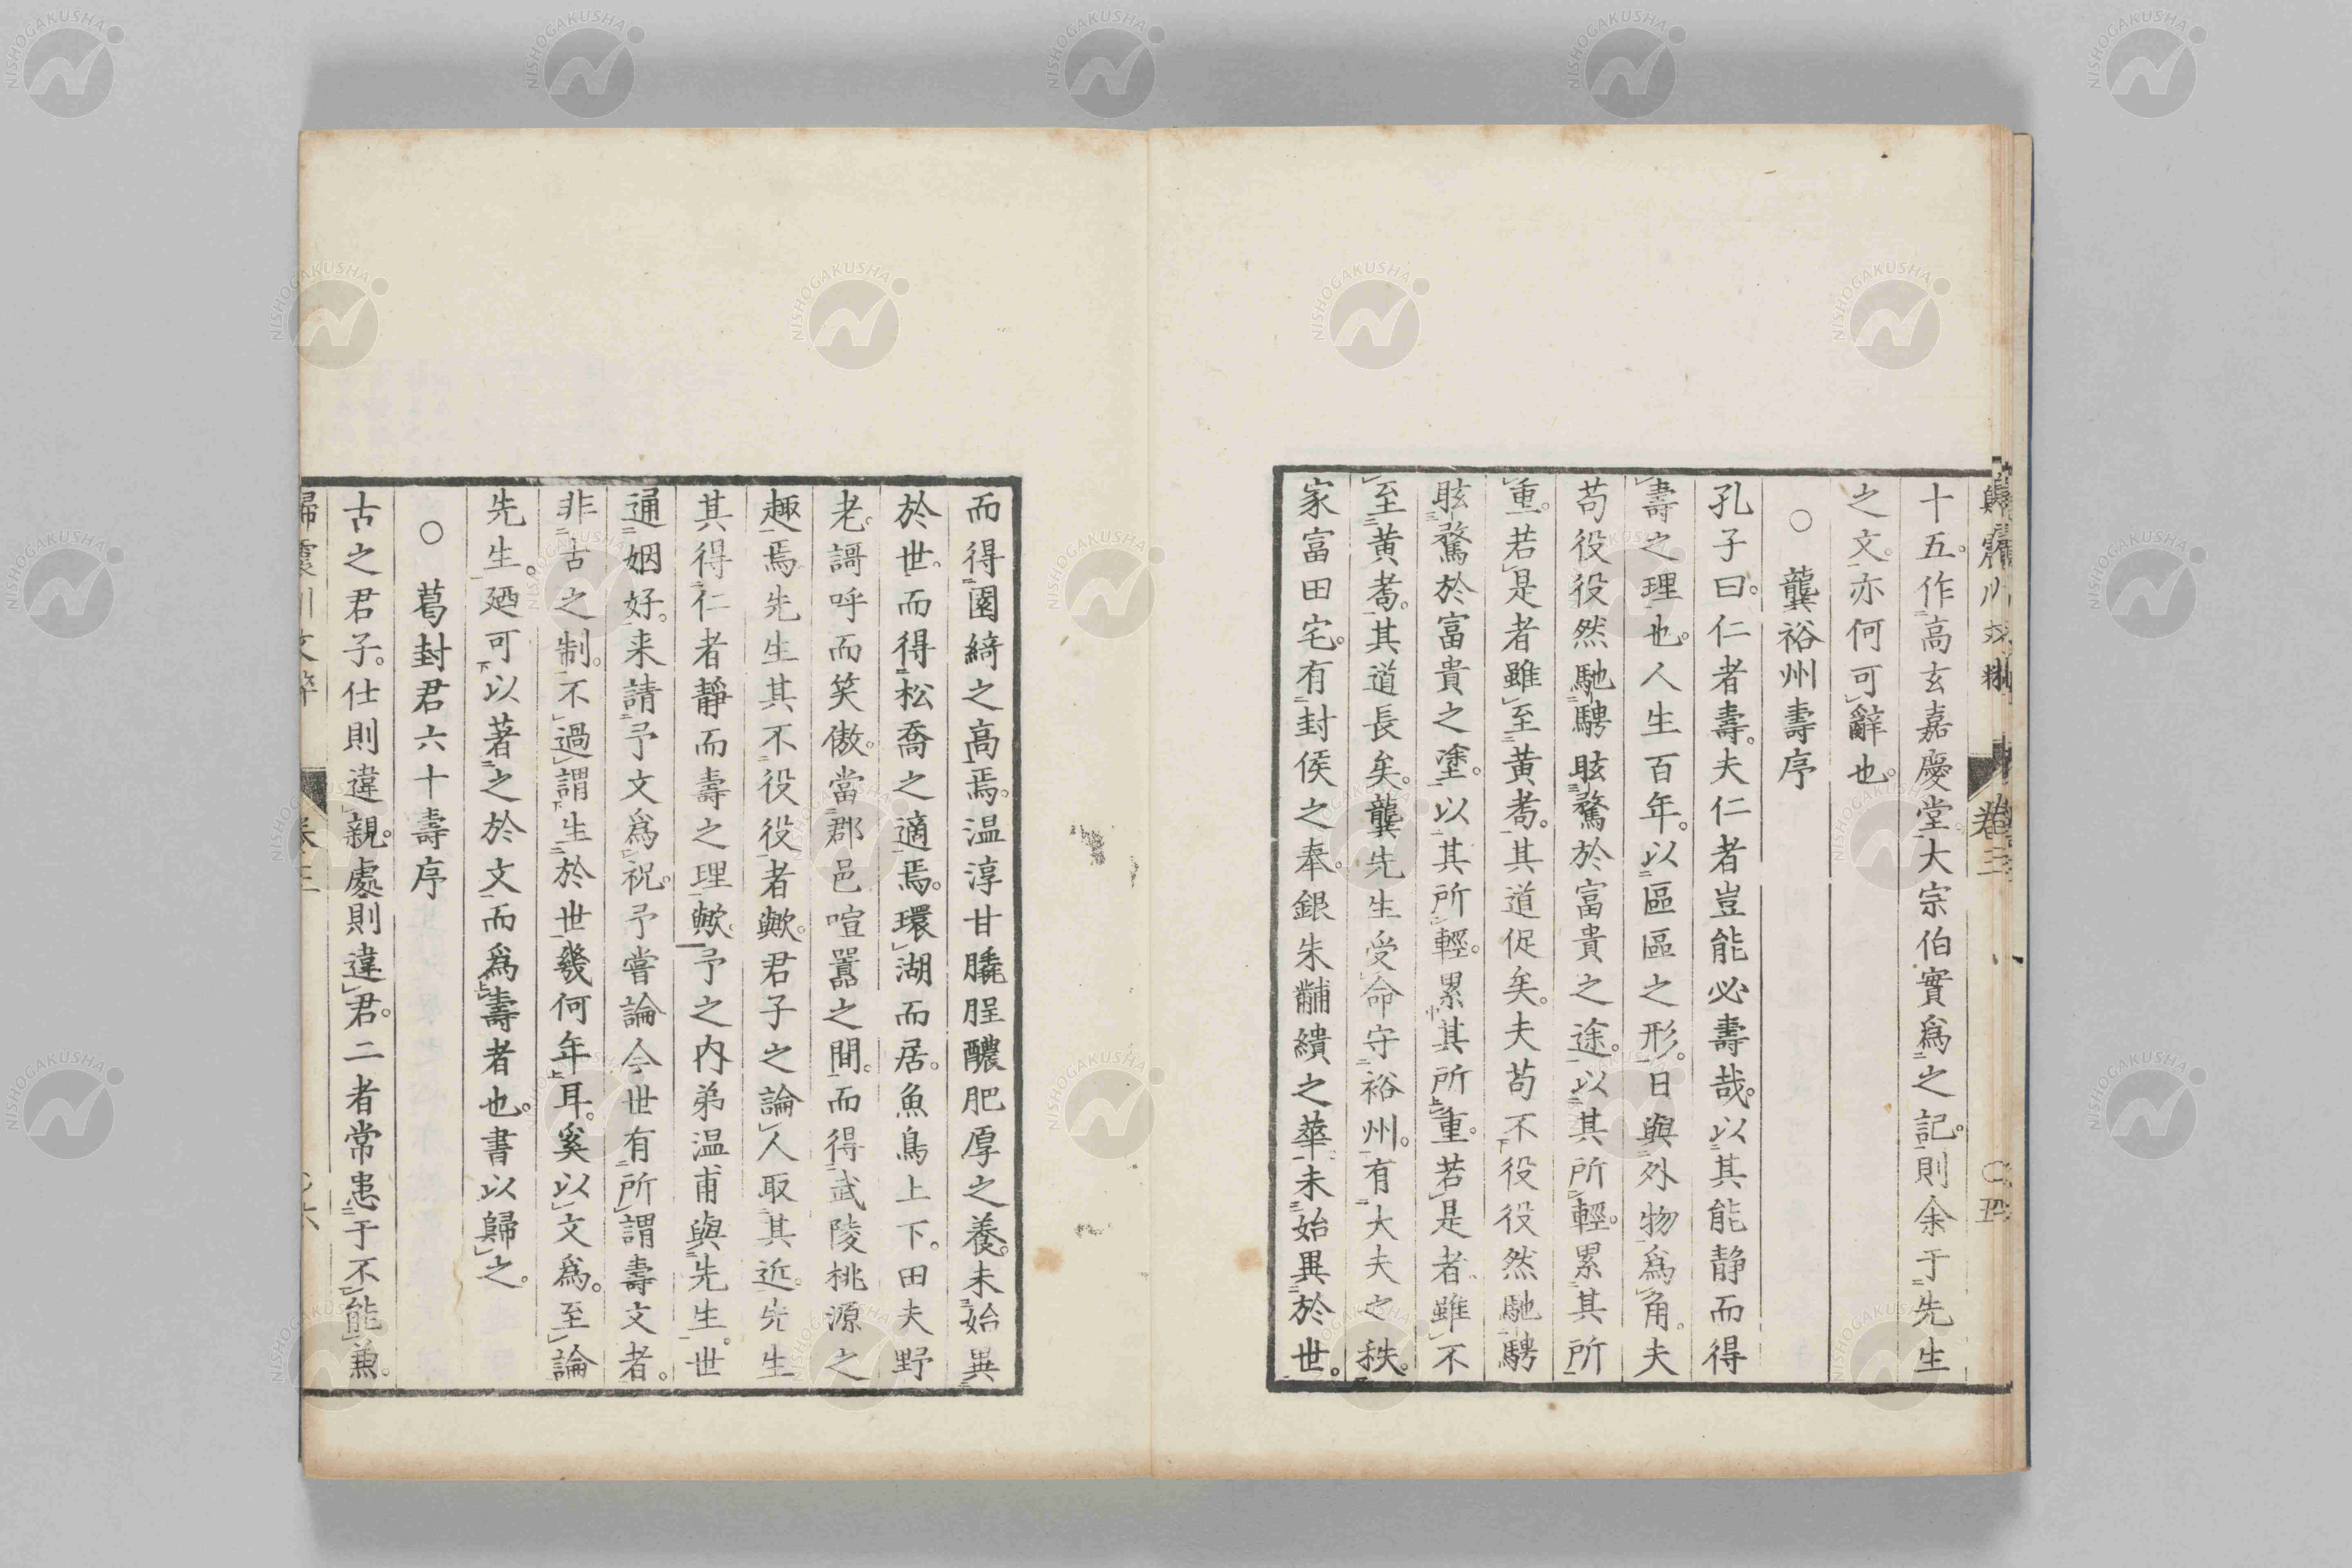 十五。作高玄嘉慶堂。大宗伯實爲之記。則余于先生
之文。亦何可辭也。
○龔裕州壽序
孔子曰。仁者壽。夫仁者豈能必壽哉。以其能靜而得
壽之理也。人生百年。以區區之形。日與外物爲角。夫
苟役役然馳騁眩騖於富貴之途。以其所輕。累其所
重。若是者雖至黃耈。其道促矣。夫苟不役役然馳騁
眩騖於富貴之塗。以其所輕。累其所重。若是者。雖不
至黃耈。其道長矣。龔先生受命守裕州。有大夫之秩。
家富田宅。有封侯之奉。銀朱黼繢之華。未始異於世。
而得園綺之高焉。温淳甘膬腥醲肥厚之養。未始異
於世。而得松喬之適焉。環湖而居。魚鳥上下。田夫野
老。謌呼而笑傲。當郡邑喧囂之間。而得武陵桃源之
趣焉。先生其不役役者歟。君子之論人取其近。先生
其得仁者靜而壽之理歟。予之内弟温甫與先生。世
通姻好。来請予文爲祝。予嘗論今世有所謂壽文者。
非古之制。不過謂生於世幾何年耳。奚以文爲。至論
先生。廼可以著之於文。而爲壽者也。書以歸之。
○葛封君六十壽序
古之君子。仕則違親。處則違君。二者常患于不能兼。
卷三
NISHOGAKUSHA